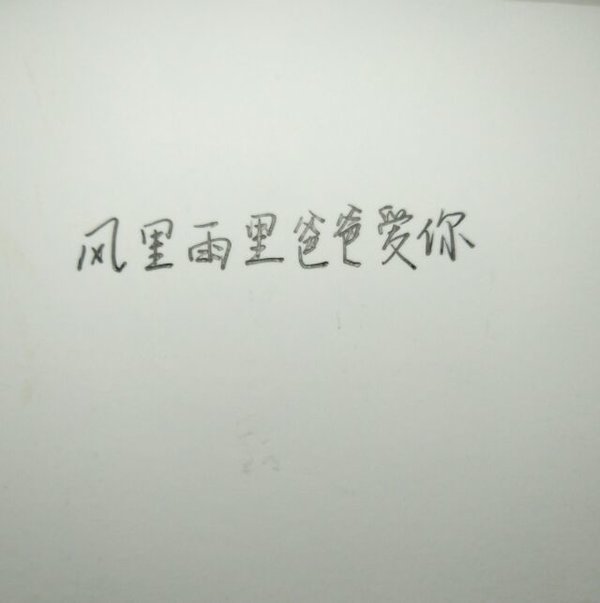 风里雨里爸爸爱你